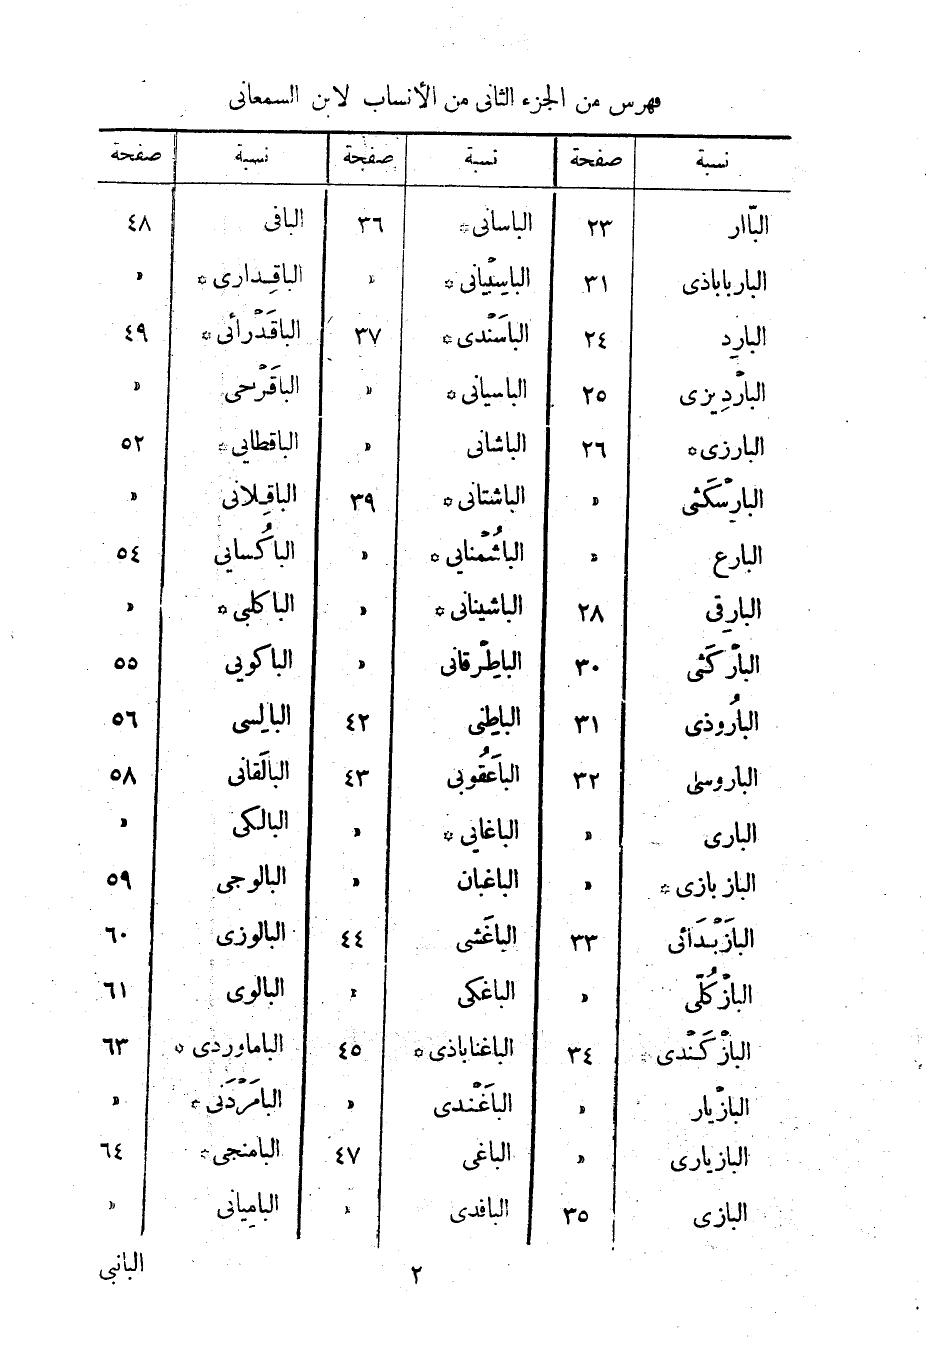 فهرس من الجزء الثانى من الأنساب لابن السمعانى
نسبة صفحة نسبة صفحة نسبة صفحة
البآار ٢٣ الباسانى * ٣٦ البافى ٤٨
البارباباذى ٣١ الباسِيْيانى * » الباقِدارى * »
البارِد ٢٤ الباسَنْدى * ٣٧ الباقَدْرأنى * ٤٩
البارْدِيزى ٢٥ الباسيانى * » الباقَرْحى »
البارزى * ٢٦ الباشانى » الباقطايى * ٥٢
البارِسْكَثى » الباشتانى * ٣٩ الباقِلانى »
البارع » الباشُمْنايى * » الباكُسايي ٥٤
البارِقى ٢٨ الباشينانى * » الباكلبى * »
البارْكَثى ٣٠ الباطِرْقانى » الباكويى ٥٥
البارُوذى ٣١ الباطِنى ٤٢ البالِسى ٥٦
الباروسى ٣٢ الباعَقُوبى ٤٣ البالَقانى ٥٨
البارى » الباغايى * » البالكى »
الباز بازى * » الباغبان » البالوجى ٥٩
البازَبْدَائى ٣٣ الباغَشى ٤٤ البالوزى ٦٠
البازْكُلّى » الباغكى » البالوى ٦١
البازْكَنْدى * ٣٤ الباغناباذى * ٤٥ الباماوردى * ٦٣
البازْيار » الباغَنْدى » البامَرْدَنى * »
البازيارى » الباغى ٤٧ البامنجى * ٦٤
البازى ٣٥ البافدى » البامِيانى »
٢ البانبى